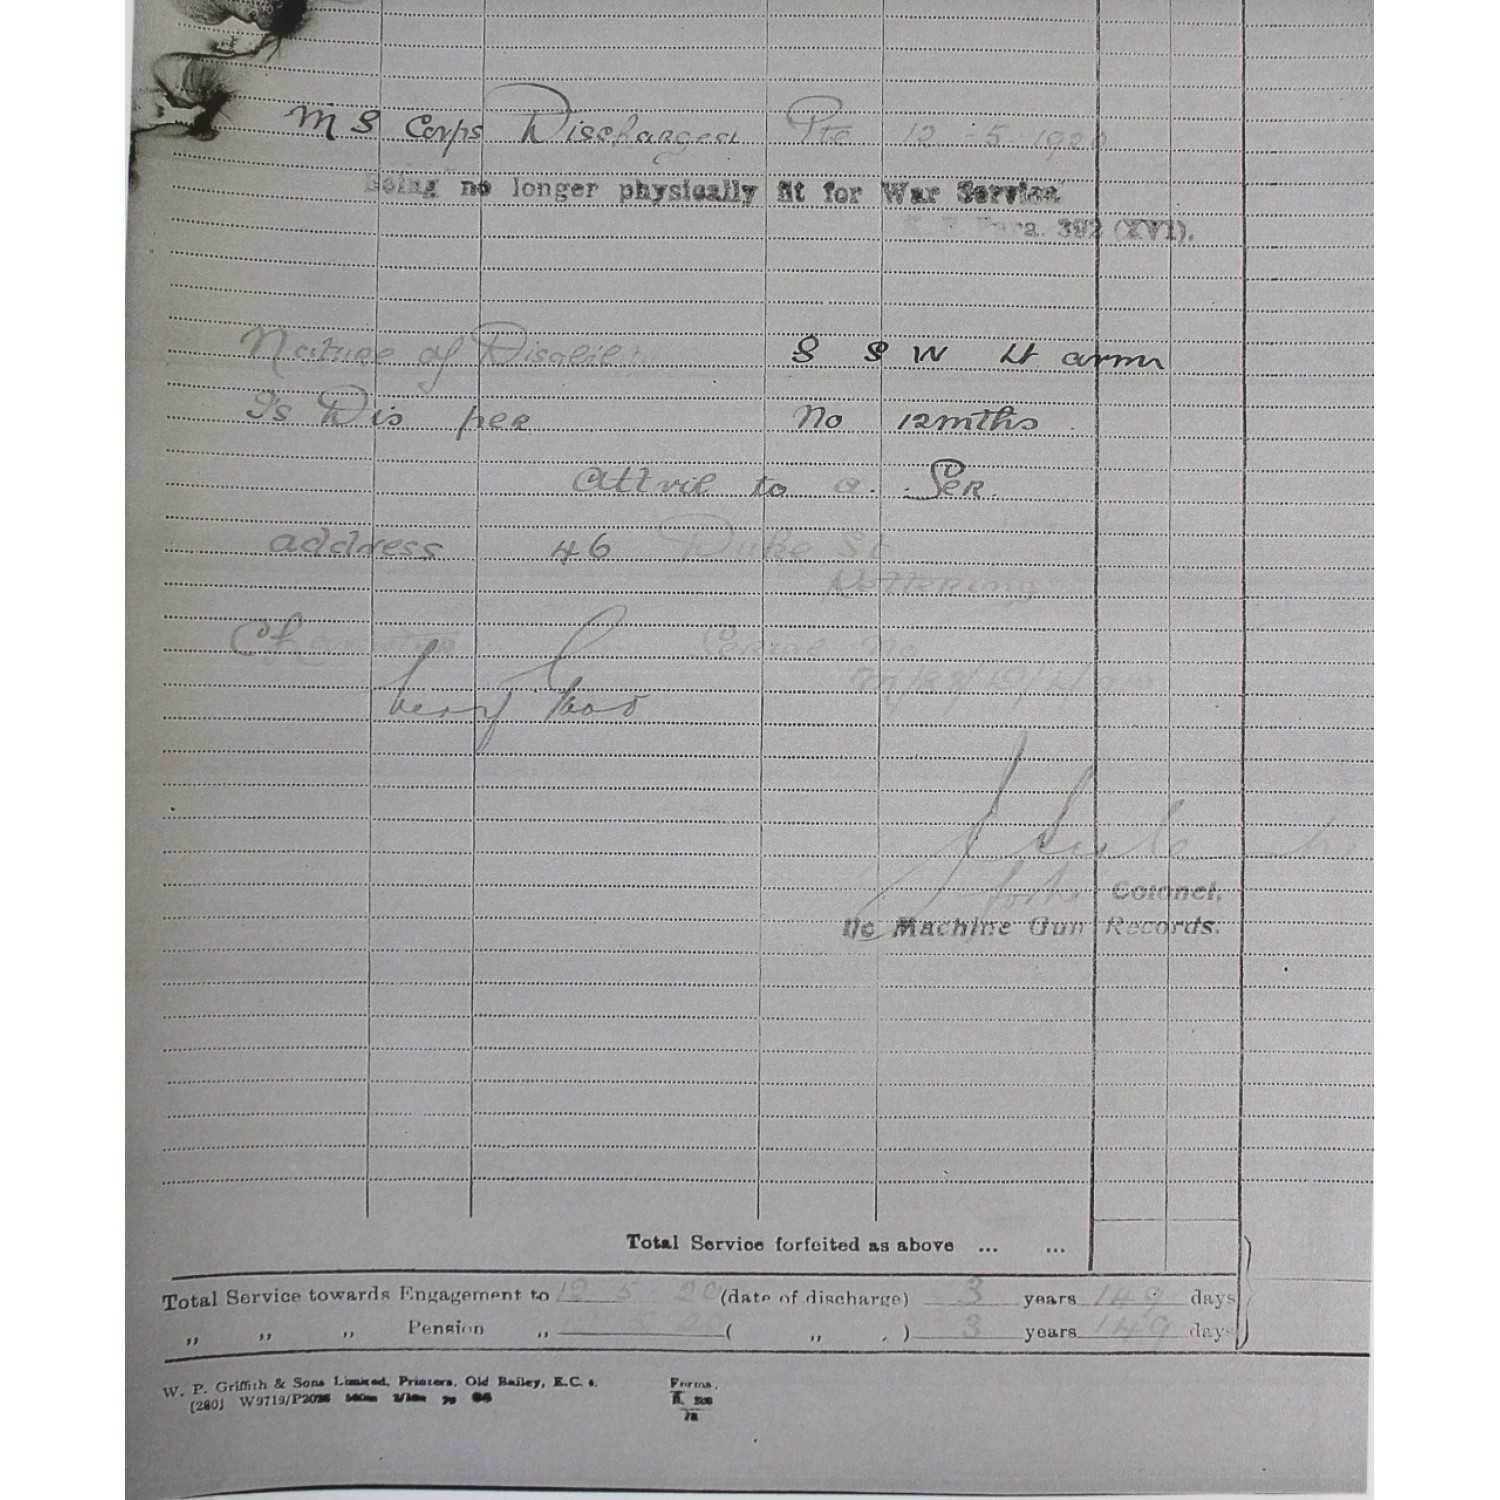 M G Corps Discharged Pte 12-5-1920
being no longer physically fit for War Service.
Para. 392 (XVI).
Nature of Disability G S W Lt arm
Is Dis per No 12mths
Attrib to a. Ser.
address 46 Duke St
Kettering
Character Serial No
Very Good
for Colonel,
i/c Machine Gun Records.
Total Service forfeited as above ... ...
Total Service towards Engagement to 12 5 20 (date of discharge) 3 years 149 days
,, ,, ,, Pension ,, 12 5 20 ( ,, , ) 3 years 149 days
W. P. Griffith & Sons Limited, Printers, Old Bailey, E.C. 4. Forms,
[280] W9719/P2025